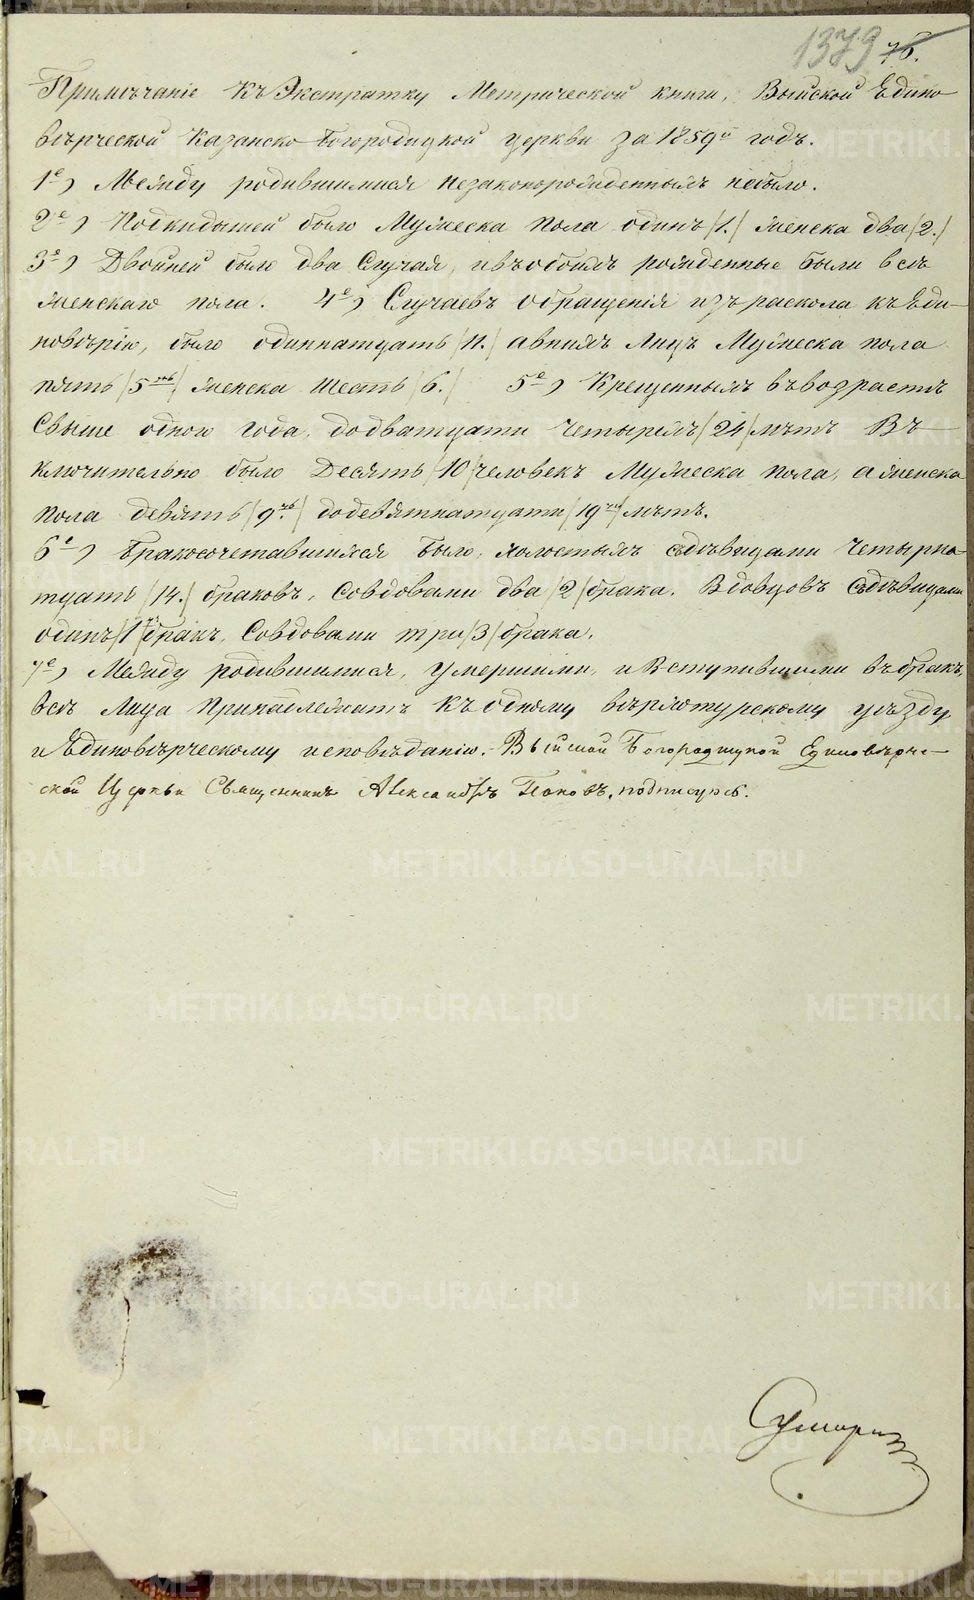 1379 76.
Примѣчаніе къ Экстрактку Метрической книги, Выйской Едино
вѣрческой Казанско Богородицкой церкви за 1859й годъ.
1е) Между родившимися незаконорожденныхъ небыло.
2е) Подкидышей было Мужеска пола одинъ /1./ женска два /2./
3е) Двойней было два Случая, ивъобоихъ рожденные были всѣ
женскаго пола. 4е) Случаевъ обращенія изъ раскола къ Еди-
новѣрію, было одиннатцать /11./ авнихъ Лицъ Мужеска пола
пять /5ть/ женска шесть /6./ 5е) Крещенныхъ въвозрастѣ
Свыше одного года, додватцати четырехъ /24/ лѣтъ Въ-
ключительно было Десять /10/ человекъ Мужеска пола, а женска
пола девять /9ть/ додевятнатцати /19ти/ лѣтъ.
6е) Бракосочетавшихся было, холостыхъ съдѣвицами Четырна-
тцать /14./ браковъ, Совдовами два /2/ брака. Вдовцовъ съдѣвицами
одинъ /1й/ бракъ, Совдовами три /3/ брака.
7е) Между родившимися, умершими, и Вступившими въбракъ,
всѣ Лица принадлежатъ къ одному верхотурскому уѣзду
и Единовѣрческому исповѣданію. Выйской Богородицкой Единовѣрче-
ской Церкви Священникъ Александръ Поповъ, подписуюсь.
METRIKI.GASO-URAL.RU